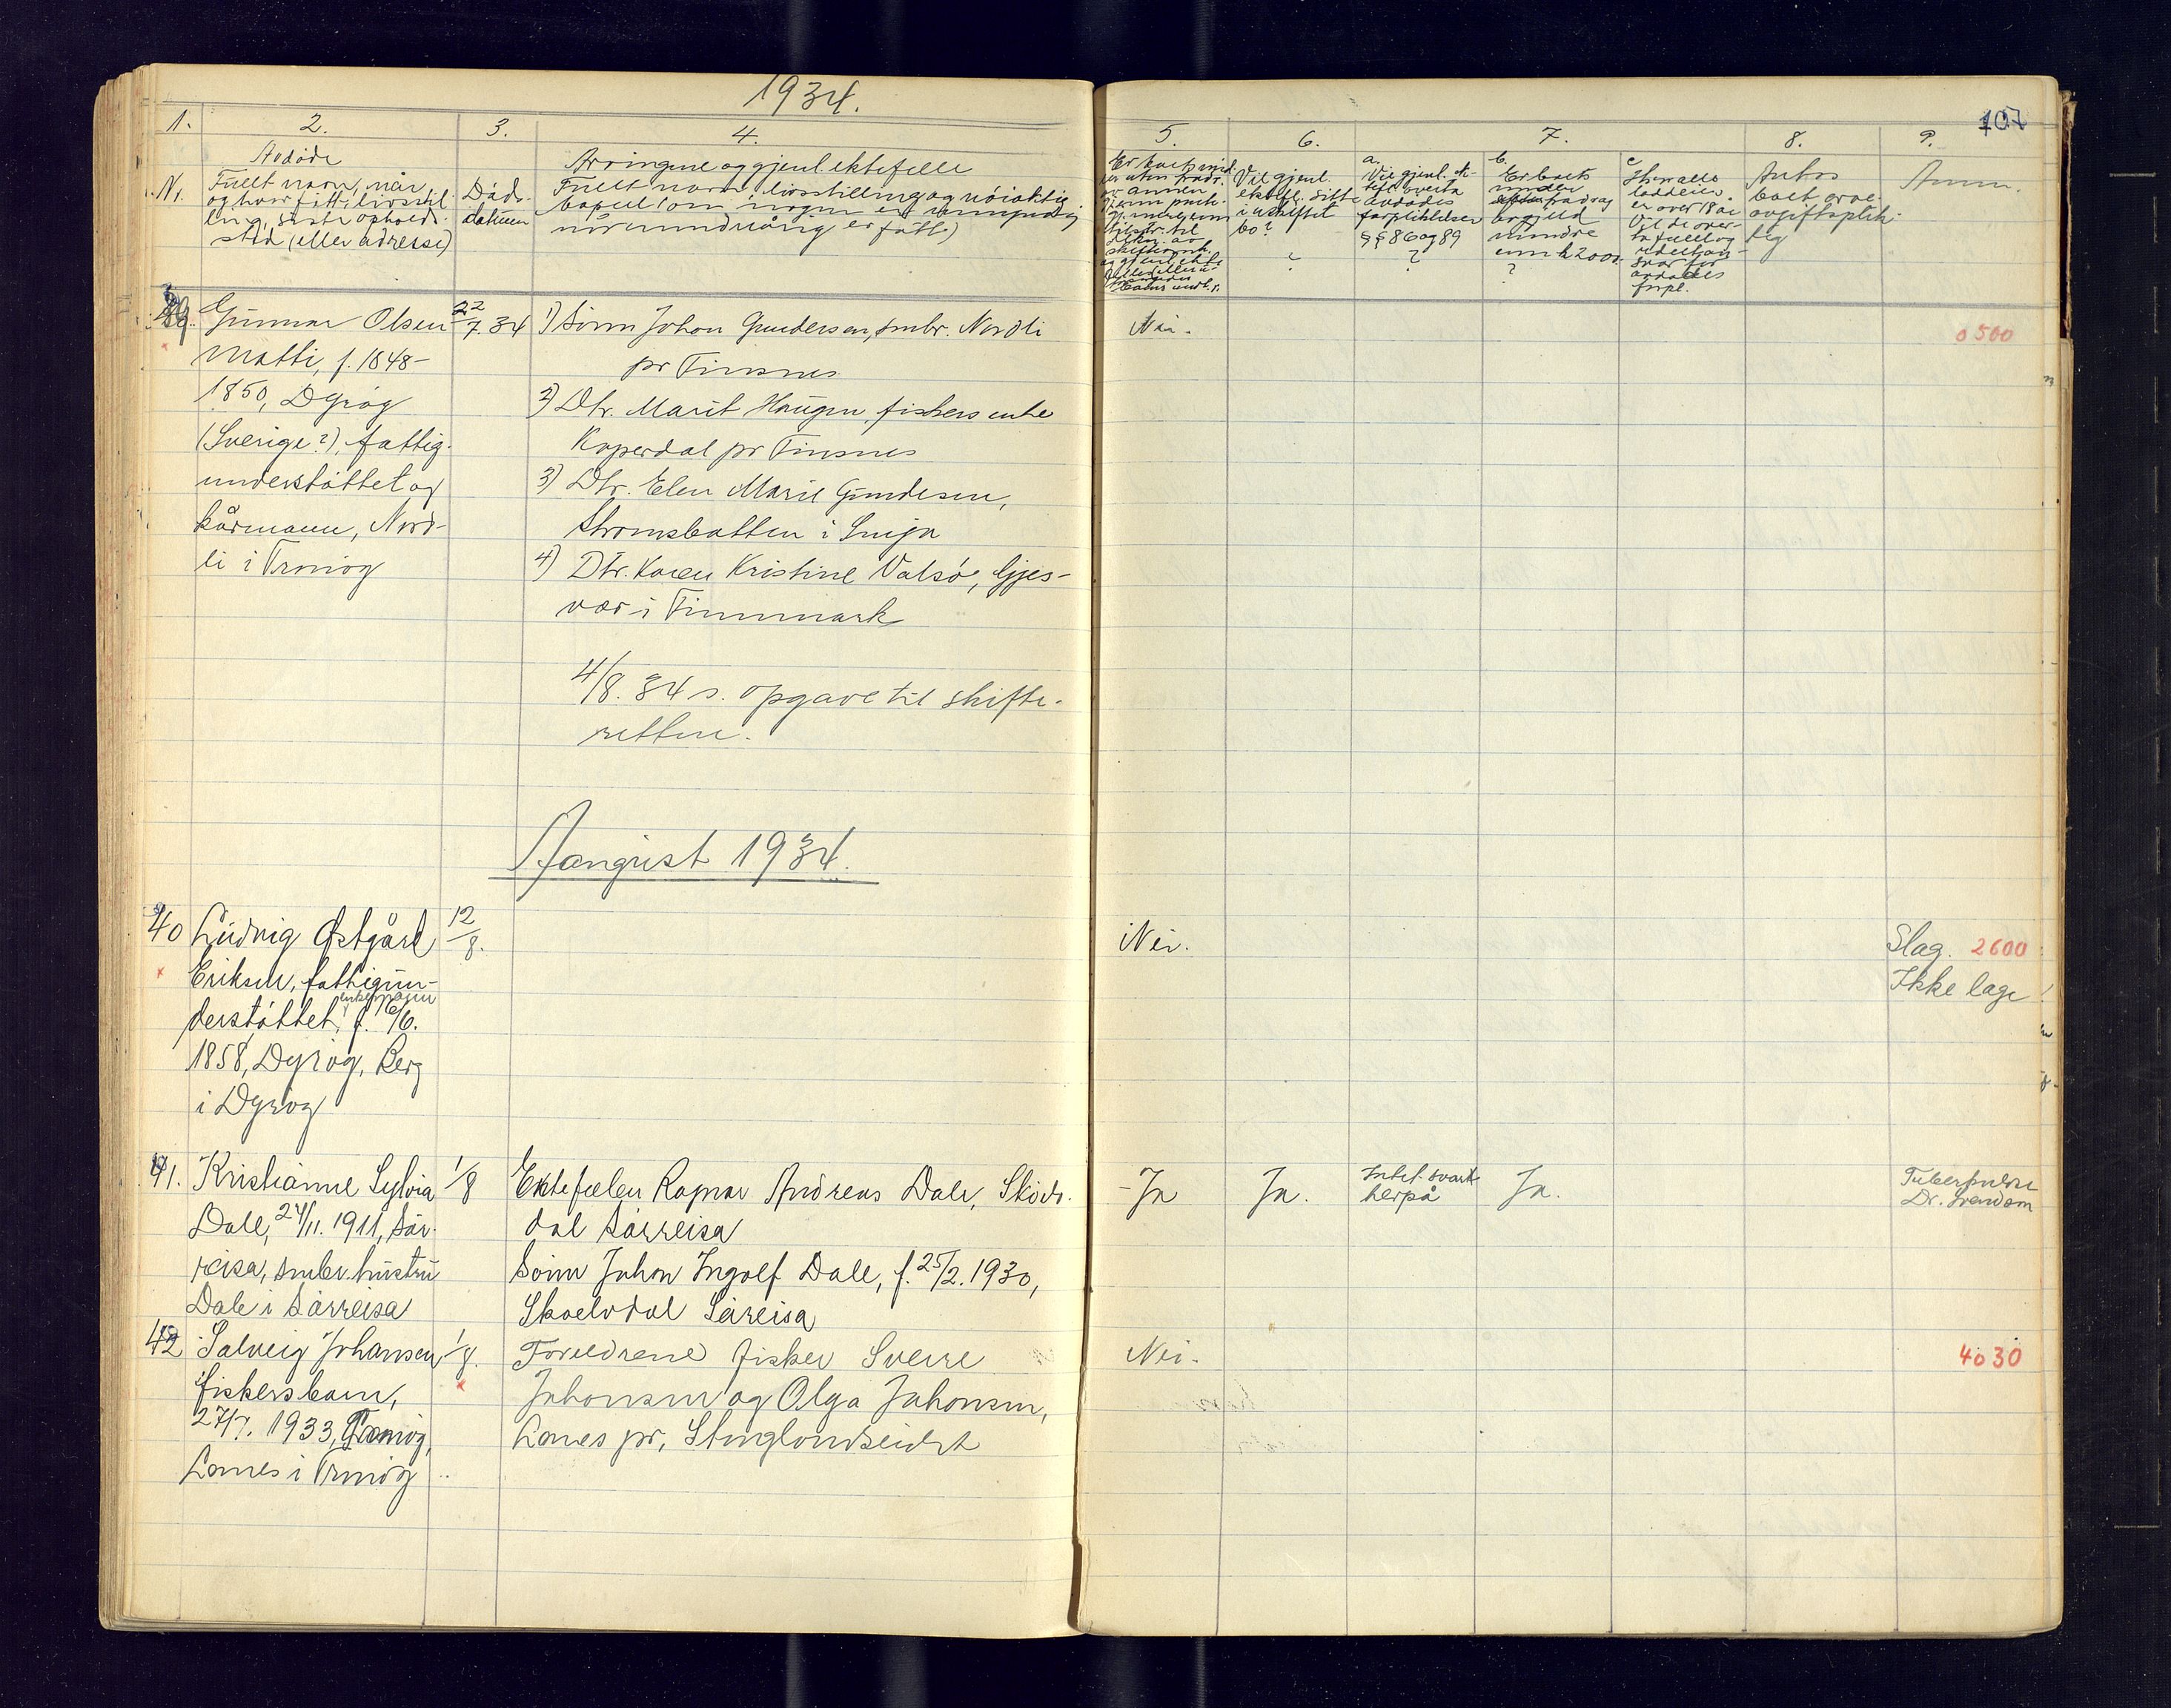 1934.
107
1.
2.
3.
4.
5.
6.
7.
8.
9.
Avdøde
Nr.
Fullt navn, når
og hvor født, livsstil-
ling, siste opholds-
sted (eller adresse)
Døds-
datum
Arvingene og gjenl. ektefelle
Fullt navn, livsstilling og nøiaktig
bopel (om nogen er umyndig
når innordning er født)
Vil gjenl.
ektefl. sitte
i uskiftet
bo?
a.
Vil gjenl. ek-
tef. overta
avdødes
forpliktelser
§§ 86 og 89
?
b.
Er boets
fradrag
av gjeld
mindre
enn k 2000.
?
c
Hvis alle
loddeiere
er over 18 år
Vil de over-
ta
avdødes
forpl.
Antas
boet arve-
avgiftsplik-
tig
Anm.
39.
Gunnar Olsen
Matti, f. 1848-
1850, Dyrøy
(Sverige?), fattig-
understøttet og
kårmann, Nord-
li i Tranøy
22/7. 34
1) Sønn Johan Gundersen, smbr. Nordli
pr Finsnes
2) Dtr. Marit Haugen, fiskers enke
Koperdal pr Finsnes
3) Dtr. Elen Marie Gundersen,
Strømsbotten i Senja
4) Dtr. Karen Kristine Valsø, Gjes-
vær i Finnmark
4/8. 34 s. opgave til skifte-
retten.
Nei.
0500
Aaugust 1934.
40
Ludvig Østgård
Eriksen, fattigun-
enkemann
derstøttet, f. 16/6.
1858, Dyrøy, Berg
i Dyrøy
12/8.
Nei.
Slag. 2600
Ikke læge
41.
Kristianne Sylvia
Dale, 24/11. 1911, Sør-
reisa, smbr. hustru
Dale i Sørreisa
1/8
Ektefellen Ragnar Andreas Dale, Skøv-
dal Sørreisa
Sønn Johan Ingolf Dale, f. 25/2. 1930,
Skoelvdal Sørreisa
Ja
Ja.
Intet svart
herpå
Ja.
Tuberkulose
Dr.
42
Solveig Johansen
fiskersbarn,
27/7. 1933, Tranøy,
Lanes i Tranøy
1/8.
Foreldrene fisker Sverre
Johansen og Olga Johansen,
Lanes pr, Stonglandseidet
Nei.
4030